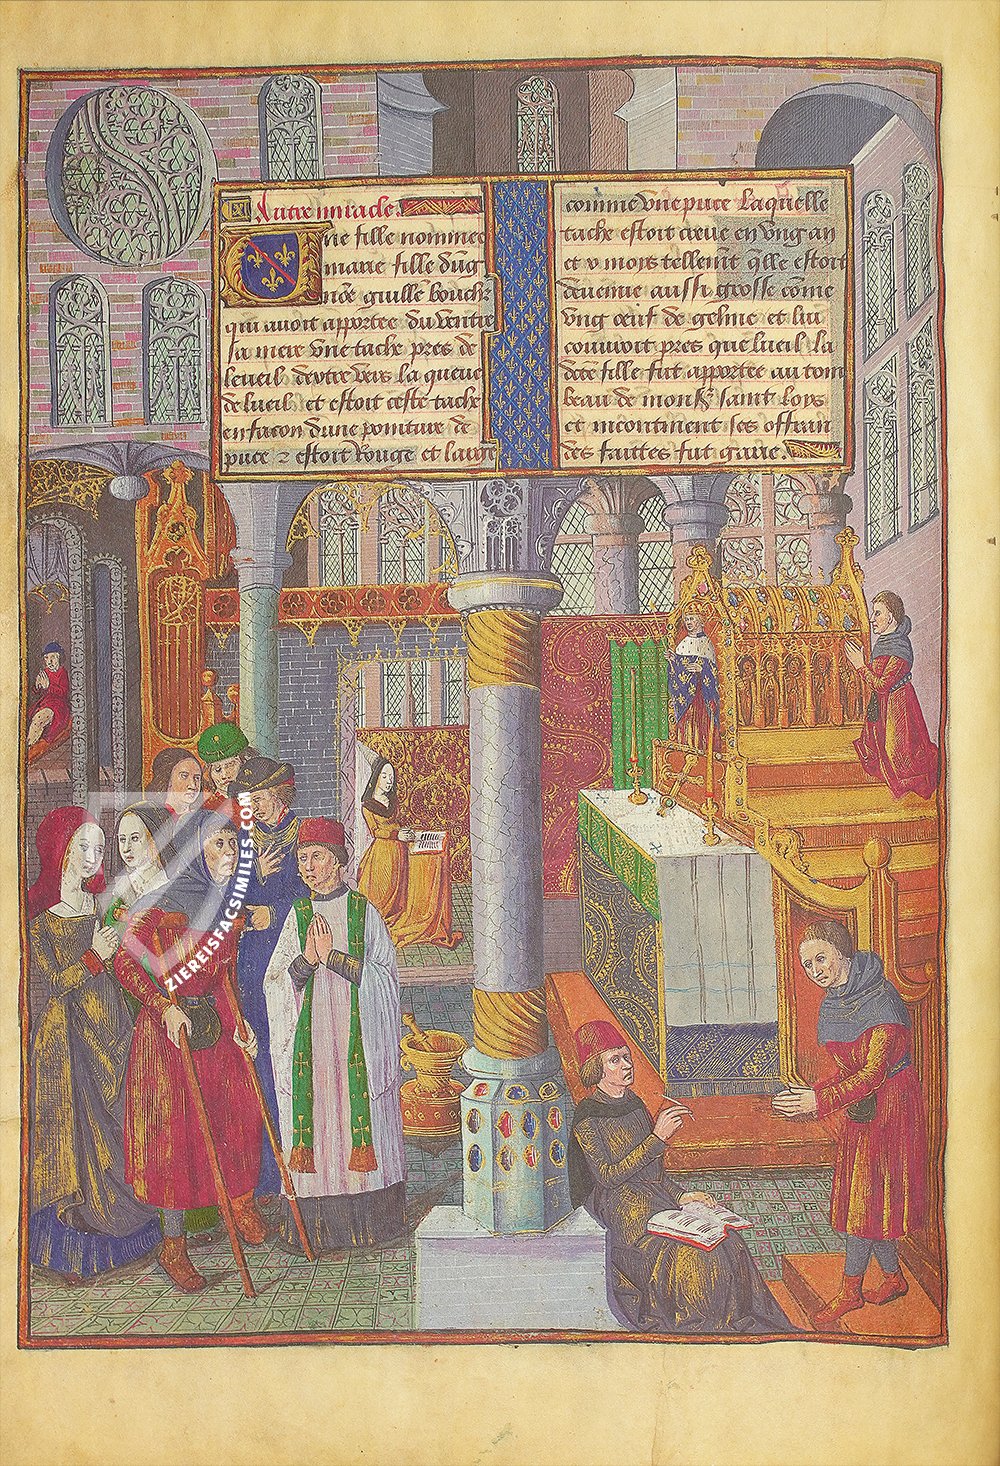 Autre miracle.
Une fille nommee
marie fille dung
nõe guille bouch
qui auoit apportee du ventre
sa mere vne tache pres de
loueil deuers vers la queue
de lueil et estoit ceste tache
en facon dune pointure de
puce z estoit Rouge et large
comme vne puce Laquelle
tache estoit creue en vng an
et v mois tellemt qlle estoit
deuenue aussi grosse cõme
vng oeuf de geline et luy
couuroit pres que lueil La
dcte fille fut apportee au tom
beau de monsr saint loys
et incontinent ses offran
des faittes fut garie.
ZIEREISFACSIMILES.COM